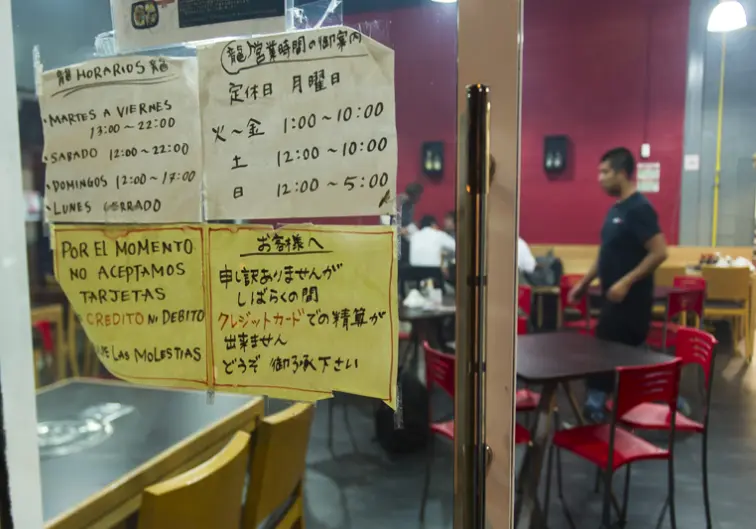 龍 HORARIOS 龍
・MARTES A VIERNES
13:00~22:00
・SABADO 12:00~22:00
・DOMINGOS 12:00~17:00
・LUNES CERRADO
龍 営業時間の御案内
定休日 月曜日
火~金 1:00~10:00
土 12:00~10:00
日 12:00~5:00
POR EL MOMENTO
NO ACEPTAMOS
TARJETAS
CREDITO NI DEBITO
LAS MOLESTIAS
お客様へ
申し訳ありませんが
しばらくの間
クレジットカードでの精算が
出来ません
どうぞ 御了承下さい